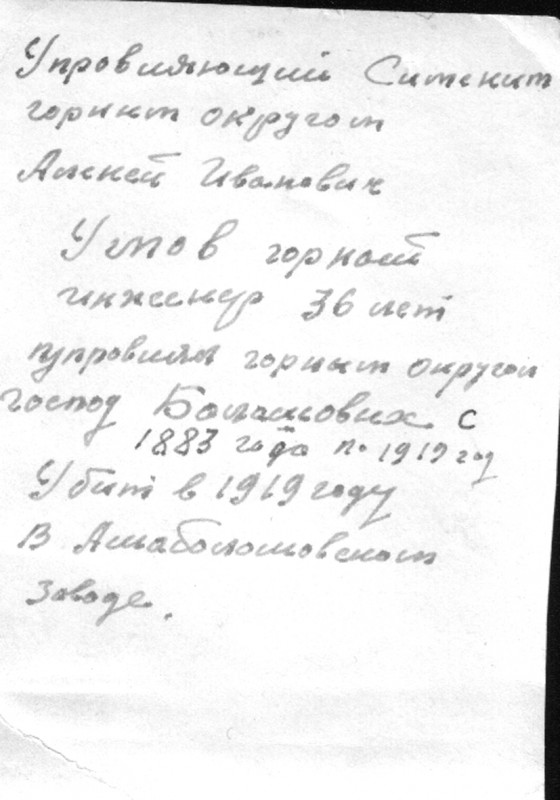 Управляющий Симским
горным округом
Алексей Иванович
Умов горный
инженер 36 лет
управлял горным округом
господ Балашовых с
1883 года по 1919 год
Убит в 1919 году
В Ашабалашовском
Заводе.